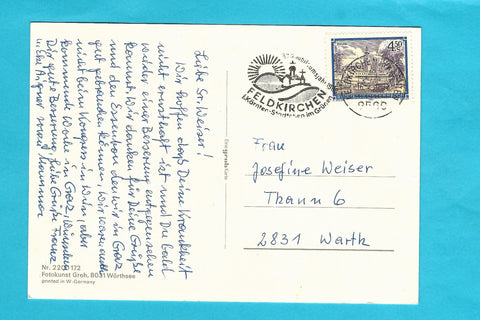 Liebe Sr. Weiser!
Wir hoffen daß Deine Krankheit
nicht ernsthaft ist und Du bald
einer Besserung entgegensehen
kannst. Wir danken für Deine Grüße
und den Essenbon den wir in Graz
gut gebrauchen können. Wir waren auch
nicht beim Kongress in Wien, aber
kommende Woche in Graz. Wünschen
gute Besserung, liebe Grüße Franz
Nr. 220 172
Fotokunst Groh, 8031 Wörthsee
printed in W.-Germany
FELDKIRCHEN
Kärnten-Städtchen im Grünen
4.50
Frau
Josefine Weiser
Thann 6
2831 Warth